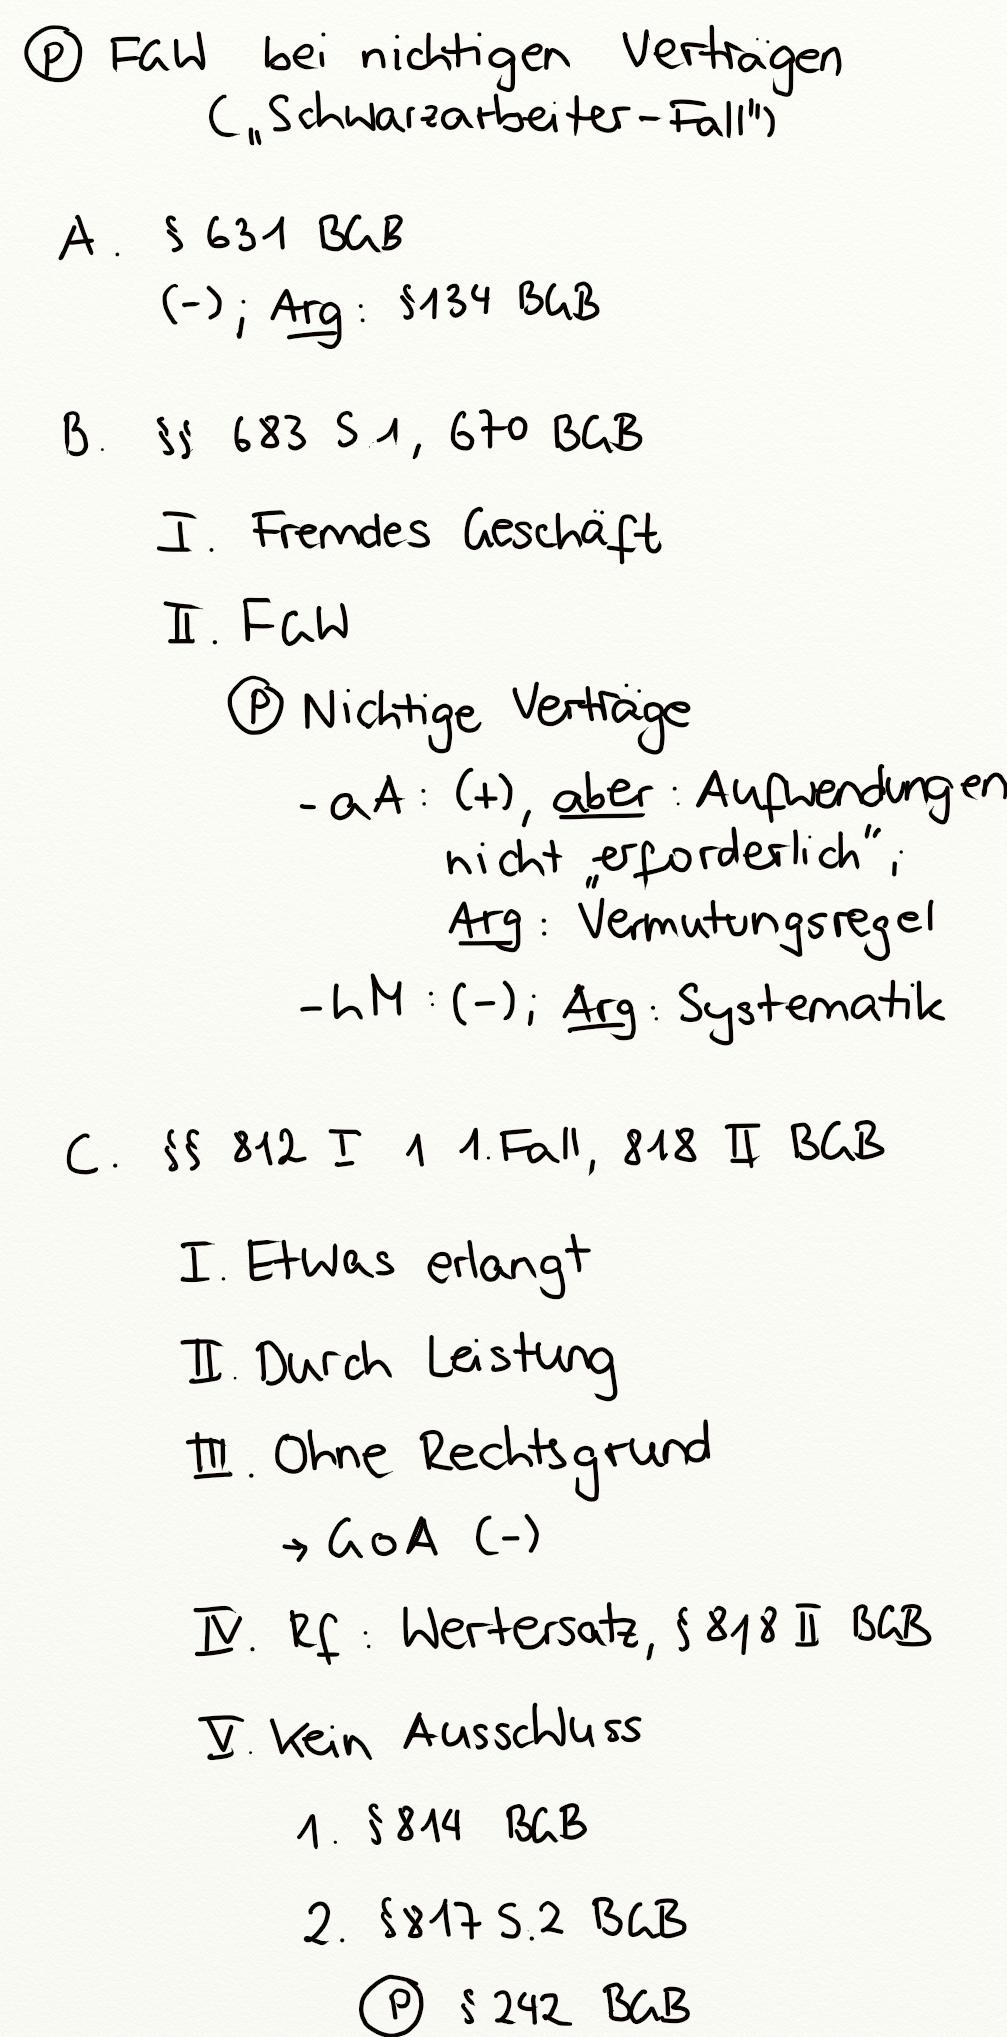 Ⓟ FGW bei nichtigen Verträgen
(„Schwarzarbeiter-Fall")
A. § 631 BGB
(-); Arg: §134 BGB
B. §§ 683 S.1, 670 BGB
I. Fremdes Geschäft
II. FGW
Ⓟ Nichtige Verträge
- aA: (+), aber: Aufwendungen
nicht „erforderlich";
Arg: Vermutungsregel
- hM: (-); Arg: Systematik
C. §§ 812 I 1 1. Fall, 818 II BGB
I. Etwas erlangt
II. Durch Leistung
III. Ohne Rechtsgrund
→ GoA (-)
IV. Rf: Wertersatz, § 818 II BGB
V. Kein Ausschluss
1. § 814 BGB
2. § 817 S.2 BGB
Ⓟ § 242 BGB